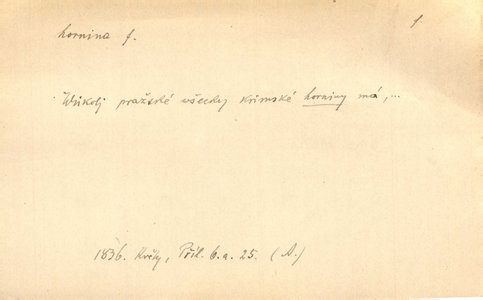 f
hornina f.
Wůkolj pražské všecky krimské horniny má,...
1836. Květy, Příl. 6. a. 25. (A.)